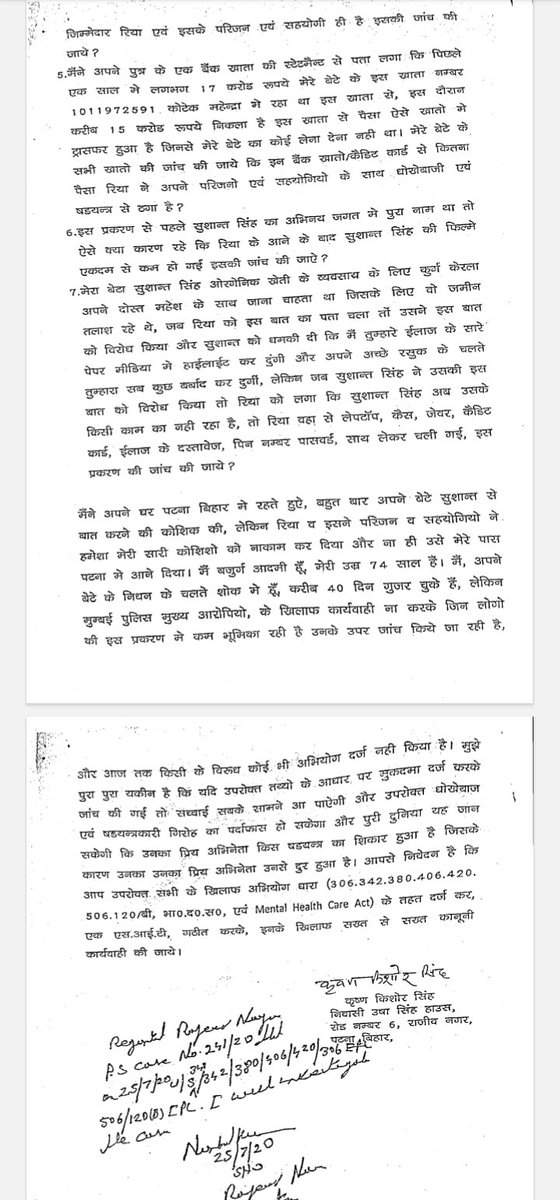 जिम्मेदार रिया एवं इसके परिजन एवं सहयोगी ही है इसकी जांच की
जाये ?
5.मैंने अपने पुत्र के एक बैंक खाता की स्टेटमैन्ट से पता लगा कि पिछले
एक साल मे लगभग 17 करोड रूपये मेरे बेटे के इस खाता नम्बर
1011972591 कोटेक महेन्द्रा मे रहा था इस खाता से, इस दौरान
करीब 15 करोड रूपये निकला है इस खाता से पैसा ऐसे खातो मे
ट्रासफर हुआ है जिनसे मेरे बेटे का कोई लेना देना नही था। मेरे बेटे के
सभी खातो की जांच की जाये कि इन बैंक खातो/कैडिट कार्ड से कितना
पैसा रिया ने अपने परिजनो एवं सहयोगियो के साथ धोखेबाजी एवं
षडयन्त्र से ठगा है ?
6.इस प्रकरण से पहले सुशान्त सिंह का अभिनय जगत मे पुरा नाम था तो
ऐसे क्या कारण रहे कि रिया के आने के बाद सुशान्त सिंह की फिल्मे
एकदम से कम हो गई इसकी जांच की जाऐ ?
7.मेरा बेटा सुशान्त सिंह ओरगेनिक खेती के व्यवसाय के लिए कुर्ग केरला
अपने दोस्त महेश के साथ जाना चाहता था जिसके लिए वो जमीन
तलाश रहे थे, जब रिया को इस बात का पता चला तॉ उसने इस बात
को विरोध किया और सुशान्त को धमकी दी कि मैं तुम्हारे ईलाज के सारे
पेपर मीडिया मे हाईलाईट कर दुंगी और अपने अच्छे रसुक के चलते
तुम्हारा सब कुछ बर्बाद कर दुर्गी, लेकिन जब सुशान्त सिंह ने उसकी इस
बात को विरोध किया तो रिया को लगा कि सुशान्त सिंह अब उसके
किसी काम का नही रहा है, तो रिया वहा से लेपटॉप, कैस, जेवर, कैडिट
कार्ड, ईलाज के दस्तावेज, पिन नम्बर पासवर्ड, साथ लेकर चली गई, इस
प्रकरण की जांच की जाये ?
मैंने अपने घर पटना बिहार मे रहते हुऐ, बहुत बार अपने बेटे सुशान्त से
बात करने की कोशिक की, लेकिन रिया व इसने परिजन व सहयोगियो ने
हमेशा मेरी सारी कोशिशो को नाकाम कर दिया और ना ही उसे मेरे पारा
पटना मे आने दिया। मैं बजुर्ग आदमी हूँ, मेरी उम्र 74 साल हैं। मैं, अपने
बेटे के निधन के चलते शोक मे हूँ, करीब 40 दिन गुजर चुके हैं, लेकिन
मुम्बई पुलिस मुख्य आरोपियो, के खिलाफ कार्यवाही ना करके जिन लोगो
की इस प्रकरण मे कम भूमिका रही है उनके उपर जांच किये जा रही है,
और आज तक किसी के विरूध कोई भी अभियोग दर्ज नही किया है। मुझे
पुरा पुरा यकीन है कि यदि उपरोक्त तथ्यो के आधार पर मुकदमा दर्ज करके
जांच की गई तो सच्चाई सबके सामने आ पाऐगी और उपरोक्त धोखेबाज
एवं षडयन्त्रकारी गिरोह का पर्दाफास हो सकेगा और पुरी दुनिया यह जान
सकेगी कि उनका प्रिय अभिनेता किस षडयन्त्र का शिकार हुआ है जिसके
कारण उनका उनका प्रिय अभिनेता उनसे दुर हुआ है। आपसे निवेदन है कि
आप उपरोक्त सभी के खिलाफ अभियोग धारा (306.342.380.406.420.
506.120/बी, भा०द०स०, एवं Mental Health Care Act) के तहत दर्ज कर,
एक एस.आई.टी, गठीत करके, इनके खिलाफ सख्त से सख्त कानूनी
कार्यवाही की जाये।
कृष्ण किशोर सिंह
कृष्ण किशोर सिंह
निवासी उषा सिंह हाउस,
रोड नम्बर 6, राजीव नगर,
पटना,बिहार,
Rajeev Nagar
P.S case No. 241/20
25/7/20 U/S 341/342/380/406/420/306
506/120(B) IPC. I will
the case
25/7/20
SHO
Rajeev